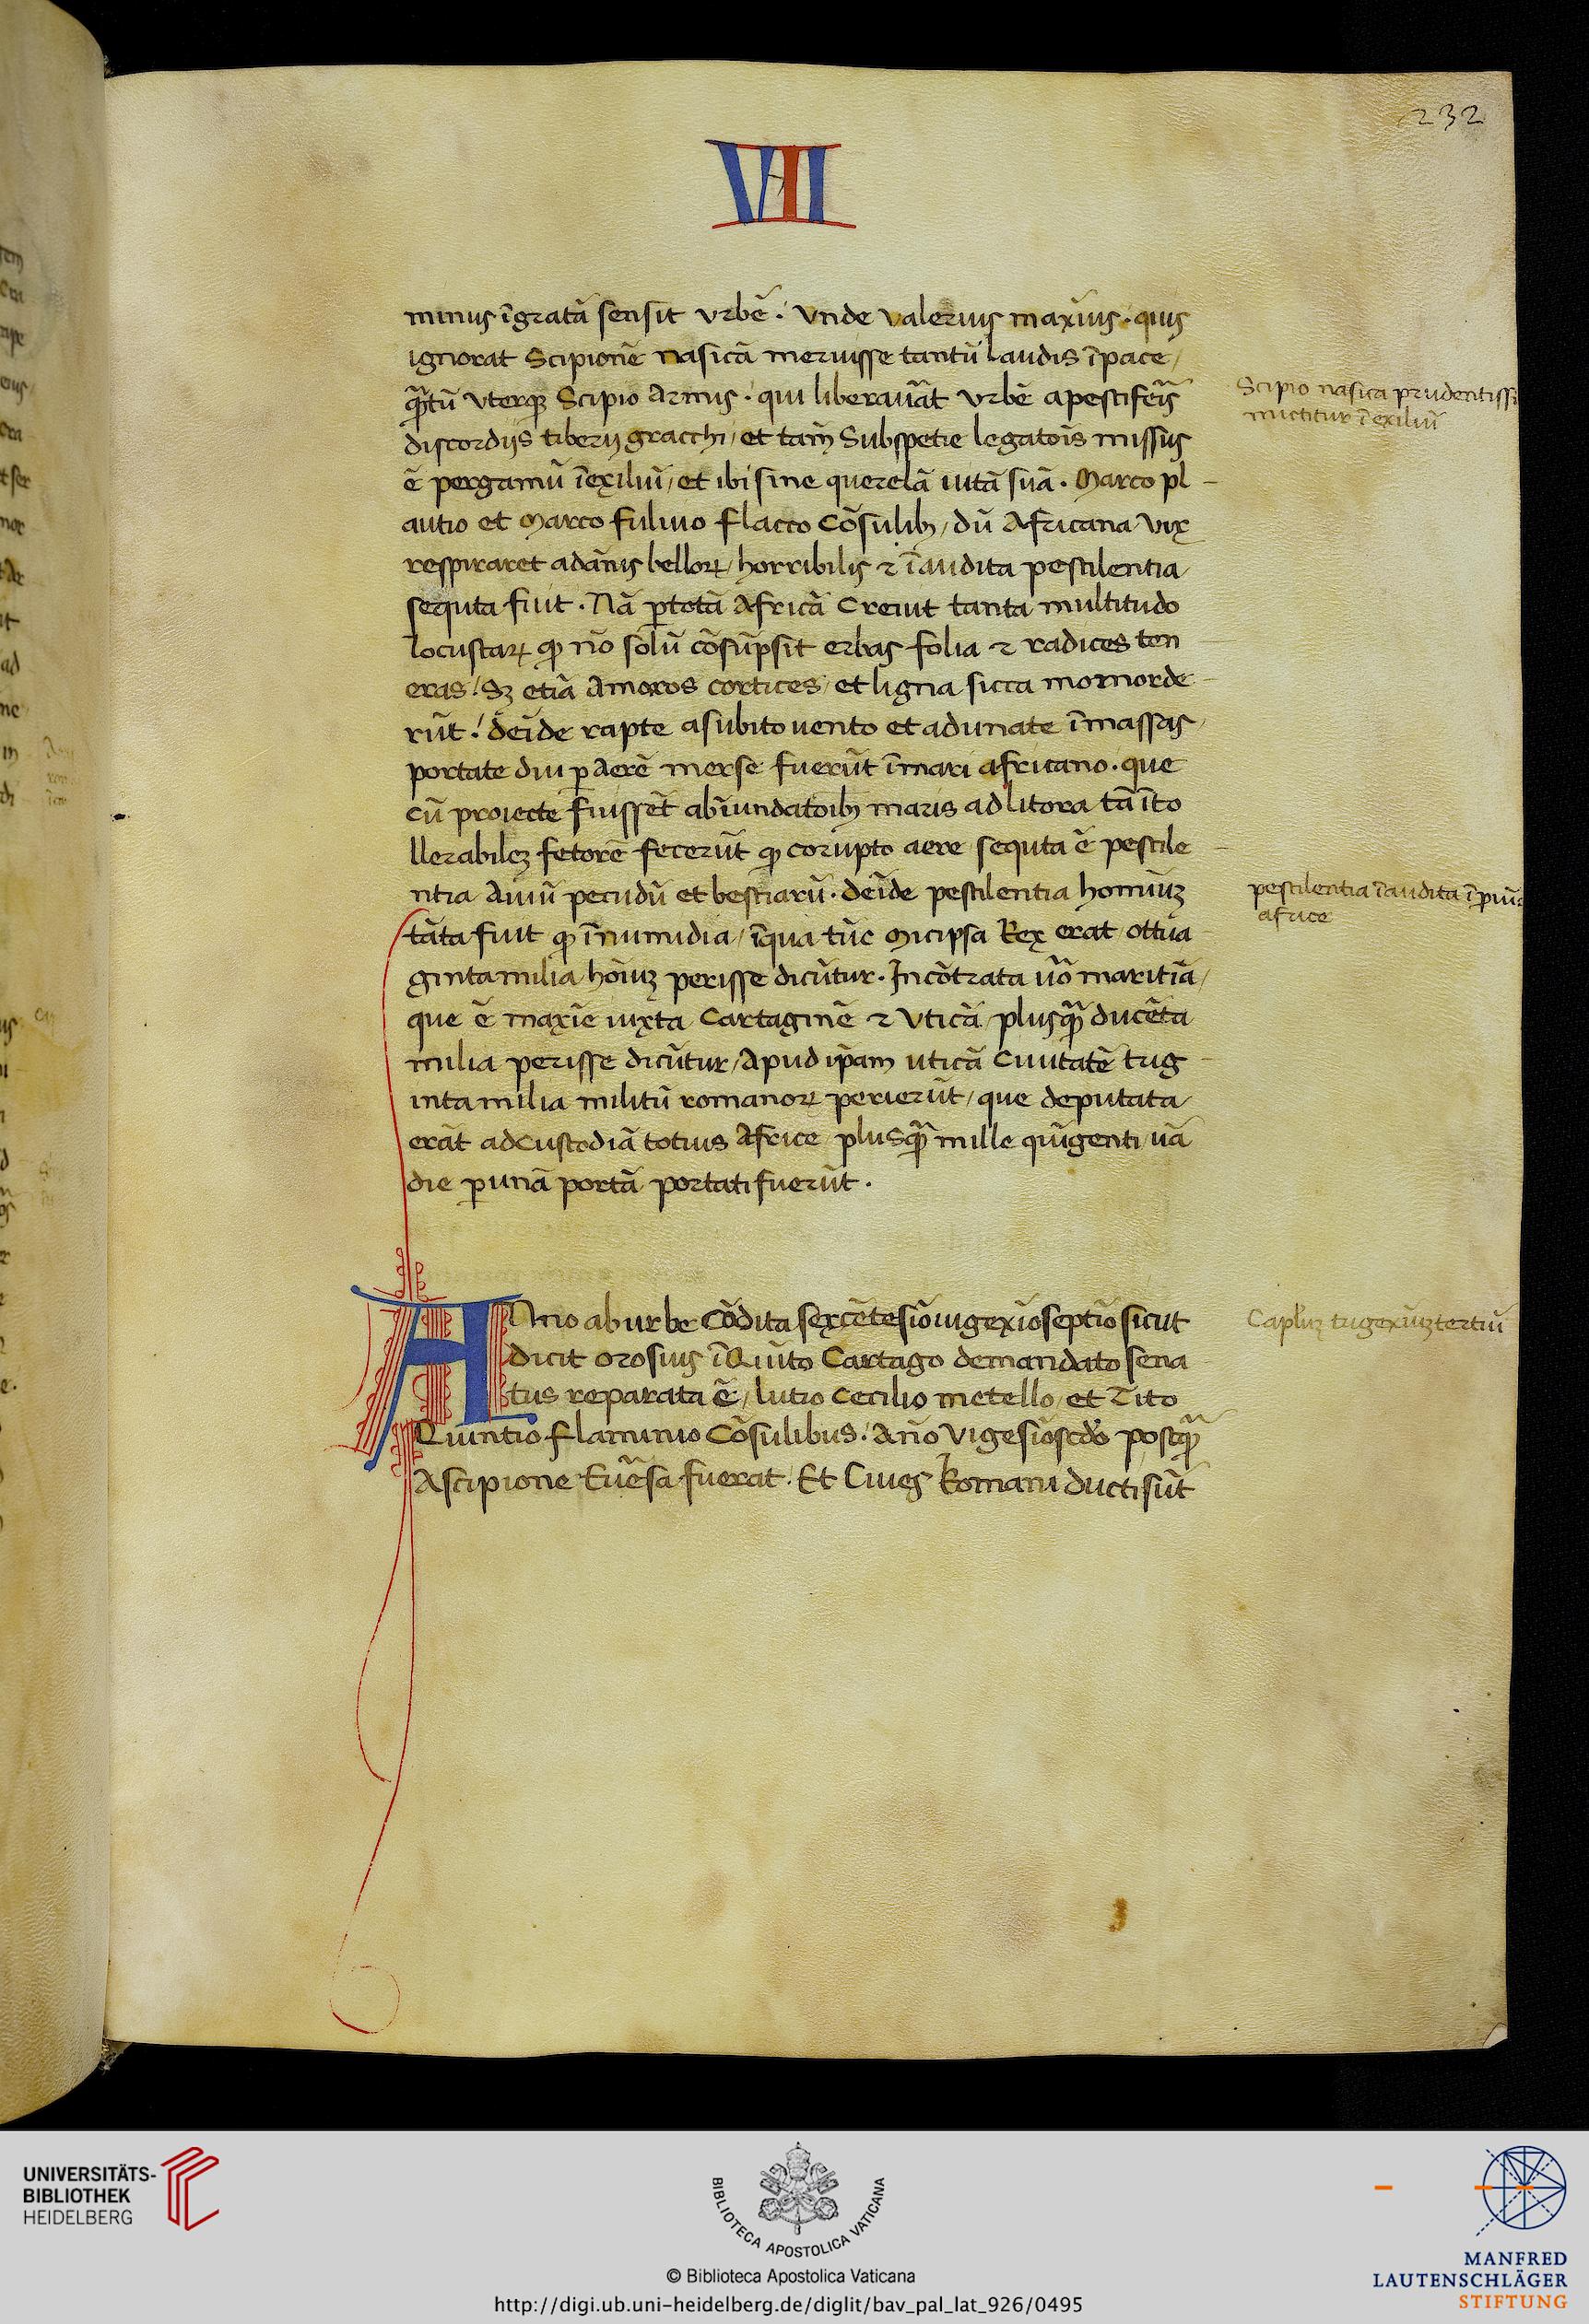 232
VII
minus īgratā sensit vrbē. Vnde valerius maxīus. quis
ignorat Scipionē nasicā meruisse tantū laudis īpace/
quātū vterque Scipio Armis. qui liberauāt vrbē apestifeīs
discordijs tiberij gracchi/ et tam̄ Subspetie legatōis missus
ē pergamū īexiliū/ et ibi sine querelā uitā suā. Marco pl-
autio et Marco fuluio flacco Cōsulibꝫ/ dū Africana vix
respiraret adānis belloꝝ/ horribilis ⁊ īaudita pestilentia
sequta fuit. Nā ꝑtotā Africā Creuit tanta multitudo
locustaꝝ ꝙ nō solū cōsūpsit erbas folia ⁊ radices ten
eras! Sꝫ etiā Amoros cortices/ et ligna sicca momorde-
rūt! deīde rapte asubito uento et adunate īmassas/
portate diu ꝑ Aerē merse fuerūt īmari africano. que
cū proiecte fuissēt abīundatōibꝫ maris ad litora tā īto
llerabileꝫ fetorē fecerūt ꝙ corupto aere sequta ē pestile-
ntia Auiū pecudū et bestiarū. deīde pestilentia homiuꝫ
tāta fuit ꝙ īnumidia/ īqua tūc Micipsa Rex erat/ ottua-
ginta milia hoīuꝫ perisse dicūtur. Incōtrata uō maritiā/
que ē maxīe iuxta Cartaginē ⁊ Vticā/ plusquā ducēta
milia perisse dicūtur/ Apud ip̄am uticā Ciuitatē trig-
inta milia militū romanoꝝ perierūt/ que deputata
erāt adcustodiā totius Africe/ plusquā mille quīgenti/ uā
die ꝑ unā portā portati fuerūt.
Anno ab urbe Cōdita sexcētesīo uigexīo septīo sicut
dicit orosius ī Quīto Cartago demandato sena
tus reparata ē/ lutio Cecilio metello/ et Tito
Quintio flaminio Cōsulibus. Año vigesīoscdō postquā
Ascipione Euēsa fuerat. Et Ciues Romani ducti sūt
Scipio nasica prudentissi
mictitur ī exiliū
pestilentia īaudita ī
africe
Capl̄uꝫ trigexīuꝫ tertiū
UNIVERSITÄTS-
BIBLIOTHEK
HEIDELBERG
BIBLIOTECA APOSTOLICA VATICANA
© Biblioteca Apostolica Vaticana
http://digi.ub.uni-heidelberg.de/diglit/bav_pal_lat_926/0495
MANFRED
LAUTENSCHLÄGER
STIFTUNG